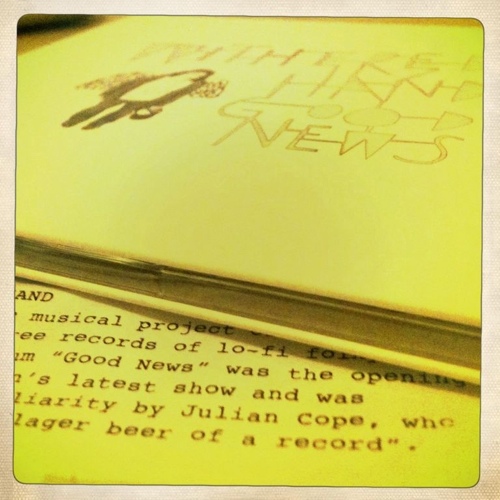 WITHERED
HAND
GOOD
NEWS
AND
musical project
ree records of lo-fi
um "Good News" was the opening
n's latest show and was
liarity by Julian Cope, who
lager beer of a record".